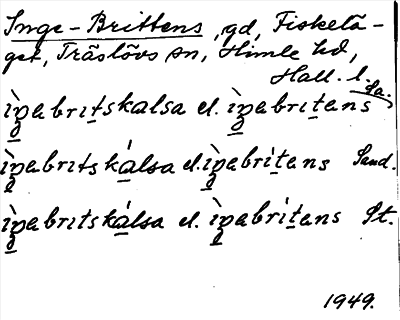 Inge-Brittens, gd, Fisketå-
get, Träslövs sn, Himle hd,
Hall. l.
ìŋabritskalsa el. ìŋabritens Sa.
ìŋabritskálsa el. ìŋabrìtens Sand.
ìŋabritskálsa el. ìŋabrìtens St.
1949.